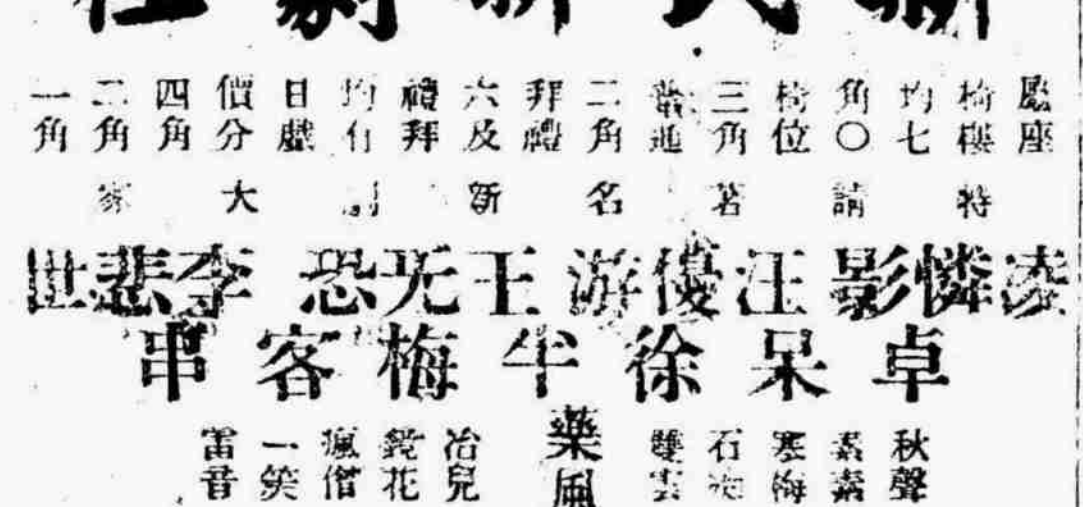 新民新劇社
廳座 椅樓 均七 角〇 椅位 三角 普通 二角 拜禮 六及 禮拜 均有 日戲 價分 四角 二角 一角
特請著名新劇大家
凌憐影 汪優游 王无恐 李悲世
卓呆徐半梅客串
秋聲 素素 寒梅 石 雙雲 藥風 冶兒 鏡花 瘋僧 一笑 雷音